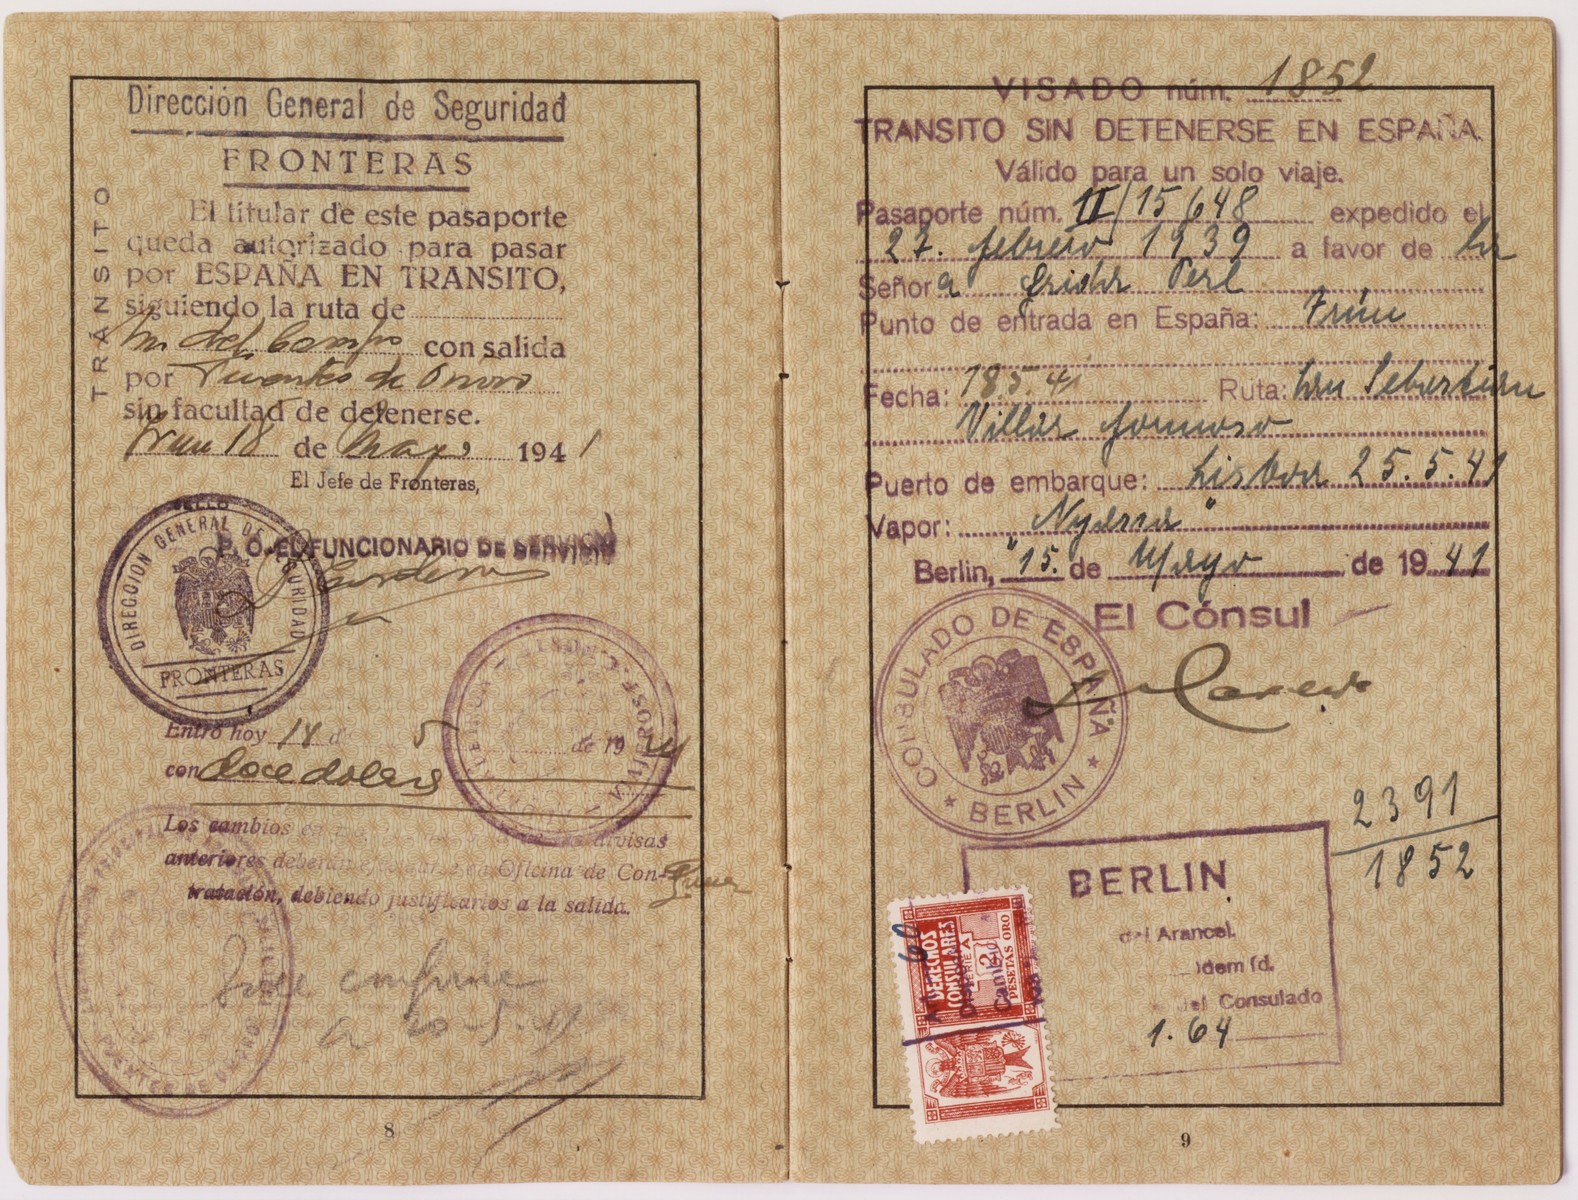 Dirección General de Seguridad
FRONTERAS
TRANSITO
El titular de este pasaporte
queda autorizado para pasar
por ESPAÑA EN TRANSITO,
siguiendo la ruta de
M. del Campo con salida
por Fuentes de Onoro
sin facultad de detenerse.
Irun 18 de Mayo 1941
El Jefe de Fronteras,
SELLO
DIRECCION GENERAL DE SEGURIDAD
FRONTERAS
P. O. EL FUNCIONARIO DE SERVICIO
Entró hoy 18 d 5 de 19 41
con doce dolars
Los cambios en divisas
anteriores deberán Oficina de Con-
tratación, debiendo justificarlos a la salida.
FUENTES DE OÑORO
a 20-5-41
8
VISADO núm. 1852
TRANSITO SIN DETENERSE EN ESPAÑA.
Válido para un solo viaje.
Pasaporte núm. II/15648 expedido el
27. febrero 1939 a favor de la
Señora Frida Perl
Punto de entrada en España: Irún
Fecha: 18.5.41 Ruta: San Sebastian
Villar formoso
Puerto de embarque: Lisboa 25.5.41
Vapor: "Nyassa"
Berlin, 15. de Mayo de 1941
El Cónsul
CONSULADO DE ESPAÑA
BERLIN
2391
1852
BERLIN
del Arancel.
Idem id.
del Consulado
1.64
60
DERECHOS
CONSULARES
SERIE A
2
PESETAS ORO
Cambio
9